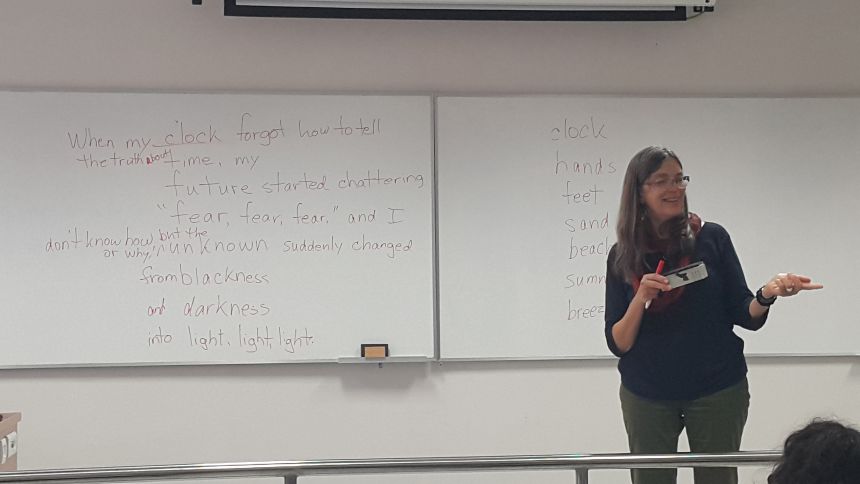 When my clock forgot how to tell
the truth about time, my
future started chattering
"fear, fear, fear," and I
don't know how or why, but the unknown suddenly changed
from blackness
and darkness
into light, light, light.
clock
hands
feet
sand